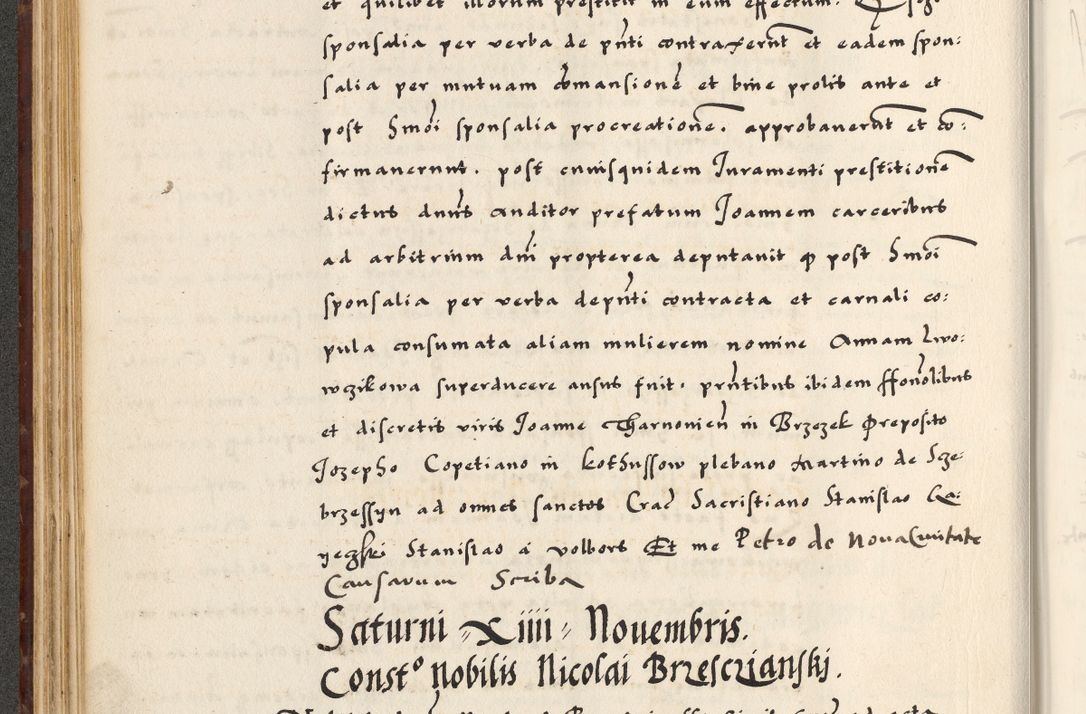 et quilibet illorum prestitit in eum effectum.
sponsalia per verba de pñti contraxerñt et eadem spon:
salia per mutuam cōmansionē et bine prolis ante et
post Smōi sponsalia procreationē. approbauerūt et cō:
firmauerunt. post cuiusquidem Iuramenti prestitionē
dictus dnūs auditor prefatum Joannem carceribus
ad arbitrium dnī propterea deputauit qp post Smōi
sponsalia per verba depñti contracta et carnali co:
pula consumata aliam mulierem nomine Annam Lwo:
wczikowa superducere ausus fuit. prñtibus ibidem ffonolibus
et discretis viris Joanne Tharnouieñ in Brzezek Preposito
Jozepho Copetiano in kothussow plebano Martino de Scze:
brzessyn ad omnes sanctos Crac̄ Sacristiano Stanislao Ra:
yeczski Stanislao a volbors Et me Petro de Noua Ciuitate
Causarum Scriba
Saturni Xiiii Nouembris.
Const° nobilis Nicolai Brzesczianskj.